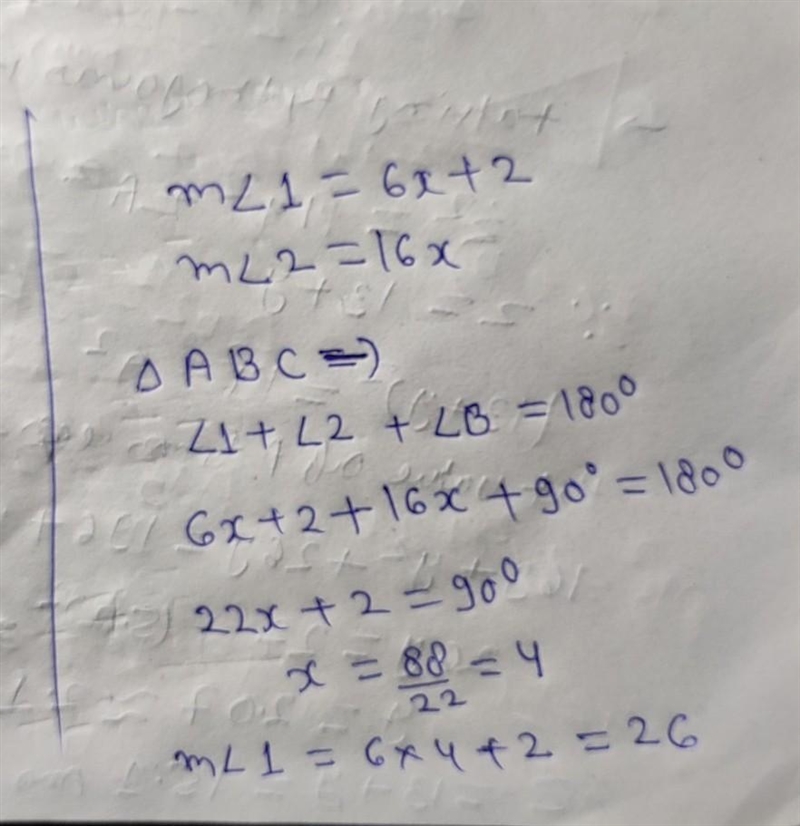 m∠1 = 6x+2
m∠2 = 16x
△ABC ⇒
∠1 + ∠2 + ∠B = 180°
6x+2+16x+90° = 180°
22x + 2 = 90°
x = 88/22 = 4
m∠1 = 6×4+2 = 26